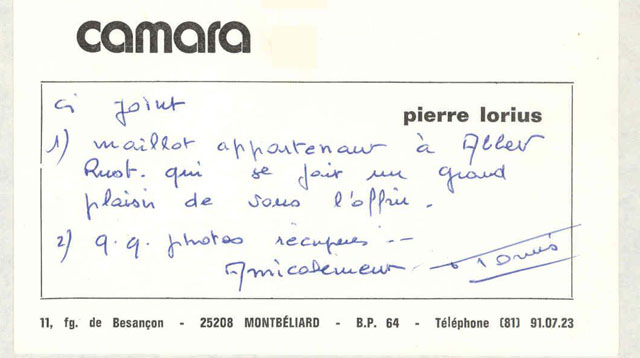 camara
pierre lorius
ci joint
1) maillot appartenant à Albert
Rust. qui se fait un grand
plaisir de vous l'offrir.
2) q.q. photos récupérés --
Amicalement Lorius
11, fg. de Besançon - 25208 MONTBÉLIARD - B.P. 64 - Téléphone (81) 91.07.23